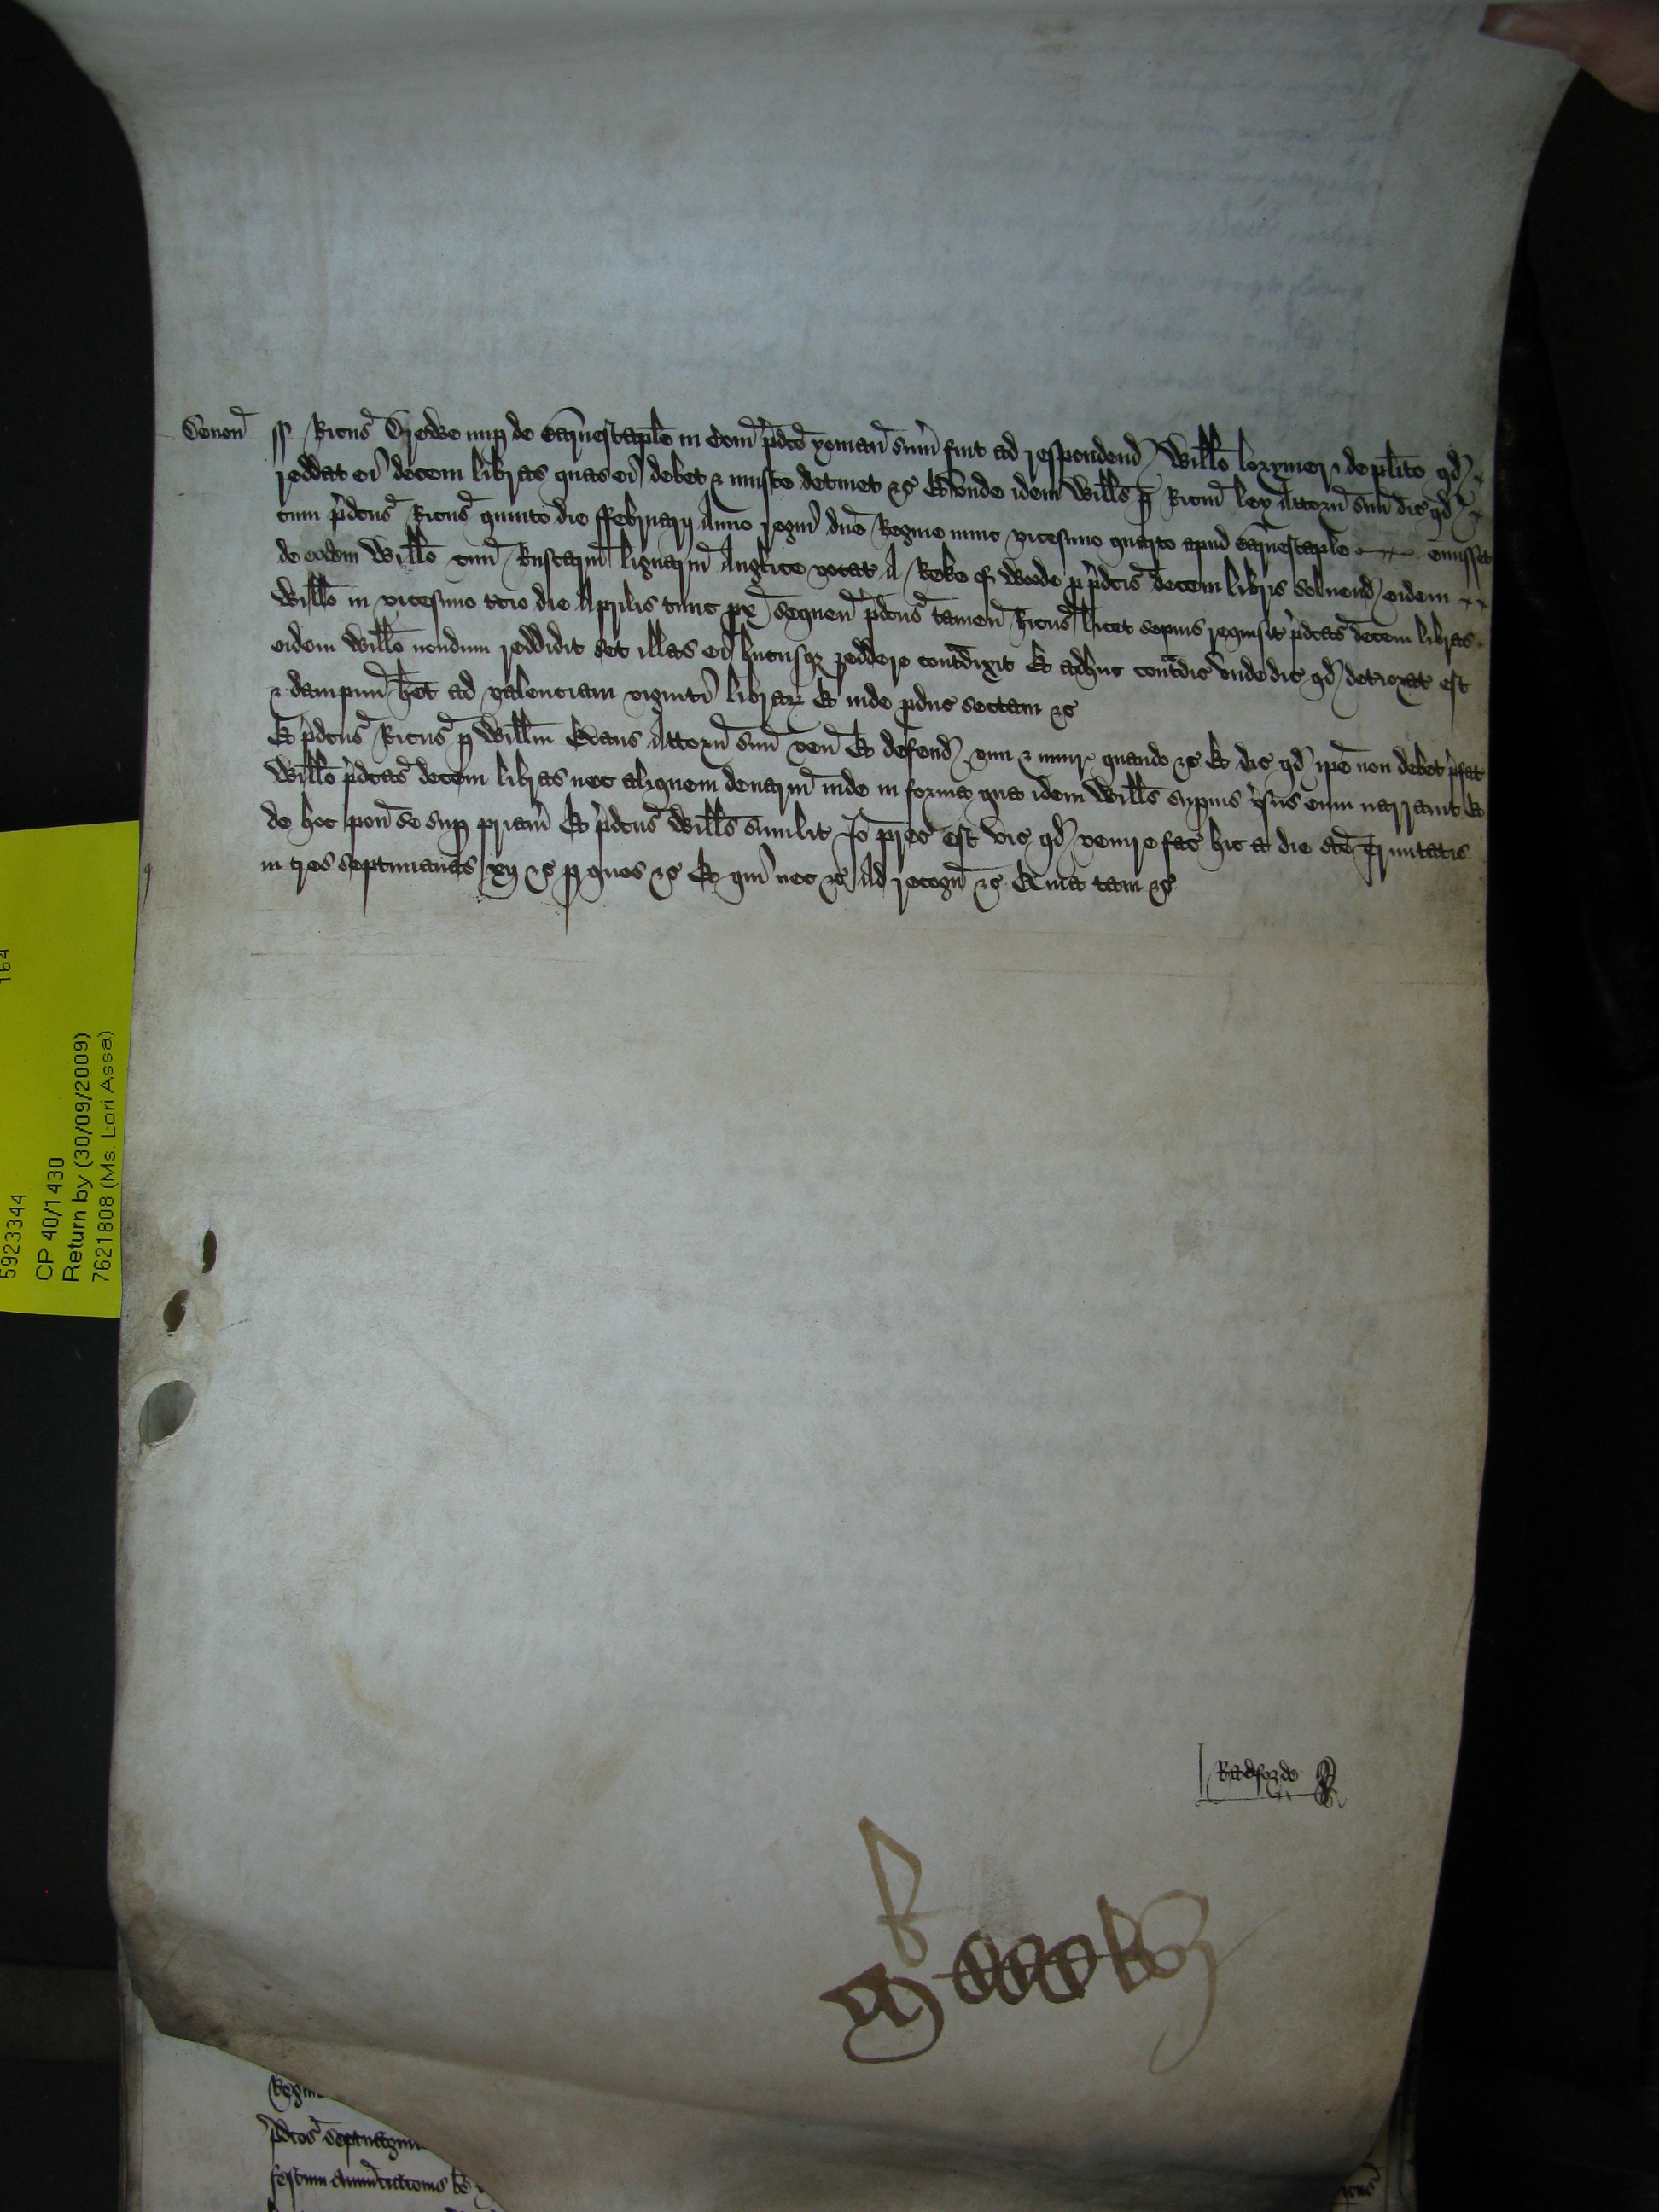 Devon ss Ricus Drewe nup de Barnestaple in Com pdco yoman sum fuit ad respondend Willo lorymer de plito qd
reddat ei decem libras quas ei debet & iniuste detinet &c Et unde idem Wills p Ricm ley Attorn suu dic qd
cum pdcus Ricus quinto die ffebruarij Anno regni dne Regine nunc vicesimo quarto apud Barnestaple emisset
de eodem Willo unu lignaru Anglice vocat A Reke of Woode p pdcis decem libris solvend eidem
Willo in vicesimo tcio die Aprilis tunc px sequen pdcus tamen Ricus licet sepius requisit pdcas decem libras
eidem Willo nondum reddidit set illas ei hucusqz reddere contradixit Et adhuc contradic unde dic qd deteriorat est
& dampnu het ad valenciam viginti librar Et inde pduc sectam &c
Et pdcus Ricus p Willm Evans Attorn suu ven Et defend vim & iniur quando &c Et dic qd ipe non debet pfat
Willo pdcas decem libras nec aliquem denariu inde in forma qua idem Wills supius vsus eum narravit Et
de hoc pon se sup priam Et pdcus Wills similit Io prec est vic qd venire fac hic a die sce Trinitatis
in tres septimanas xij &c p quos &c Et qui nec &c Ad recogn &c Quia tam &c
Radforde
Regine
pdcos septuagin
festum Annunciacionis be
5923344
164
CP 40/1430
Return by (30/09/2009)
7621808 (Ms. Lori Assa)